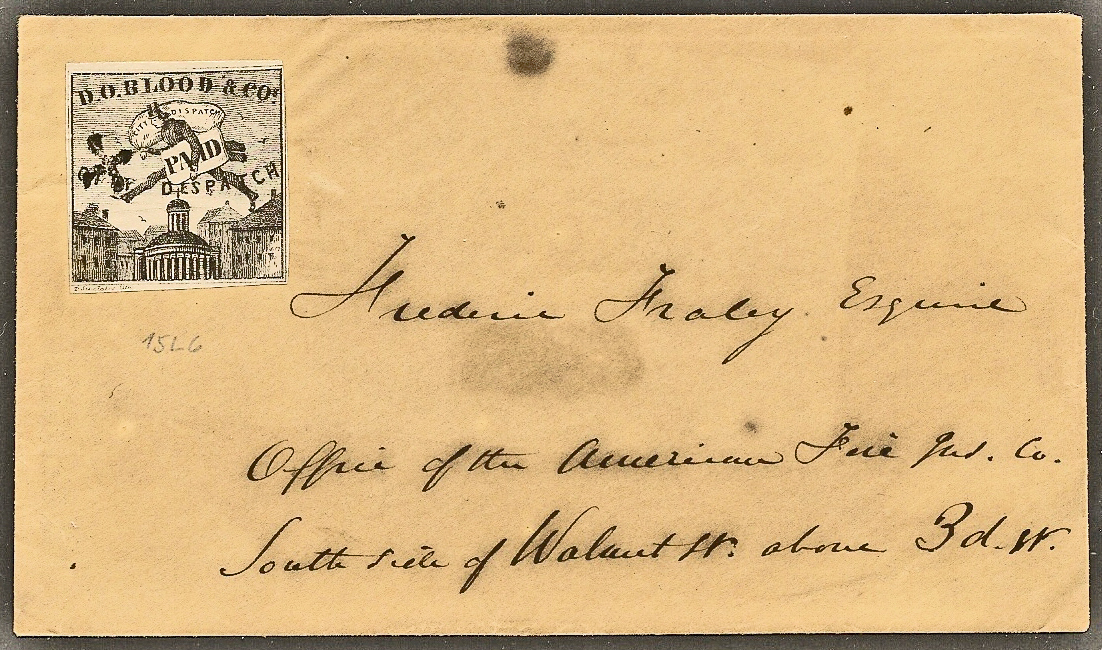 D.O.BLOOD & CO'S
CITY DISPATCH
PAID
DESPATCH
15L6
Frederic Fraley Esquire
Office of the American Fire Ins. Co.
South side of Walnut St. above 3d. St.